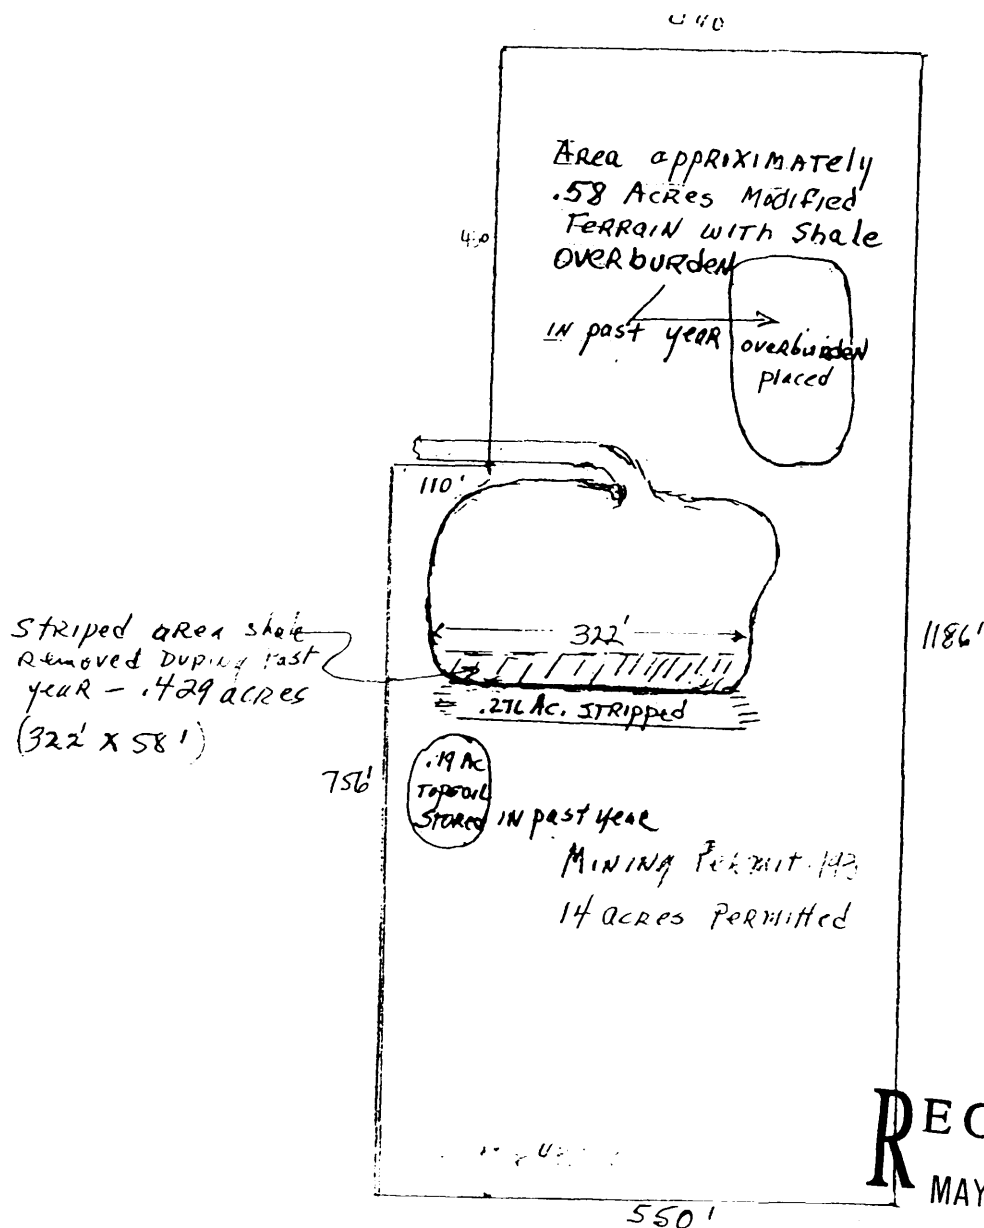 Area appRIXIMATely
.58 Acres Modified
Terrain with Shale
Overburden
in past year
overburden
placed
110'
322'
1186'
Striped area shale
Removed During Past
year - .429 acres
(322' x 58')
Ac. Stripped
756'
.19 Ac
Topsoil
Stored
in past year
Mining Permit
14 acres Permitted
MAY
550'